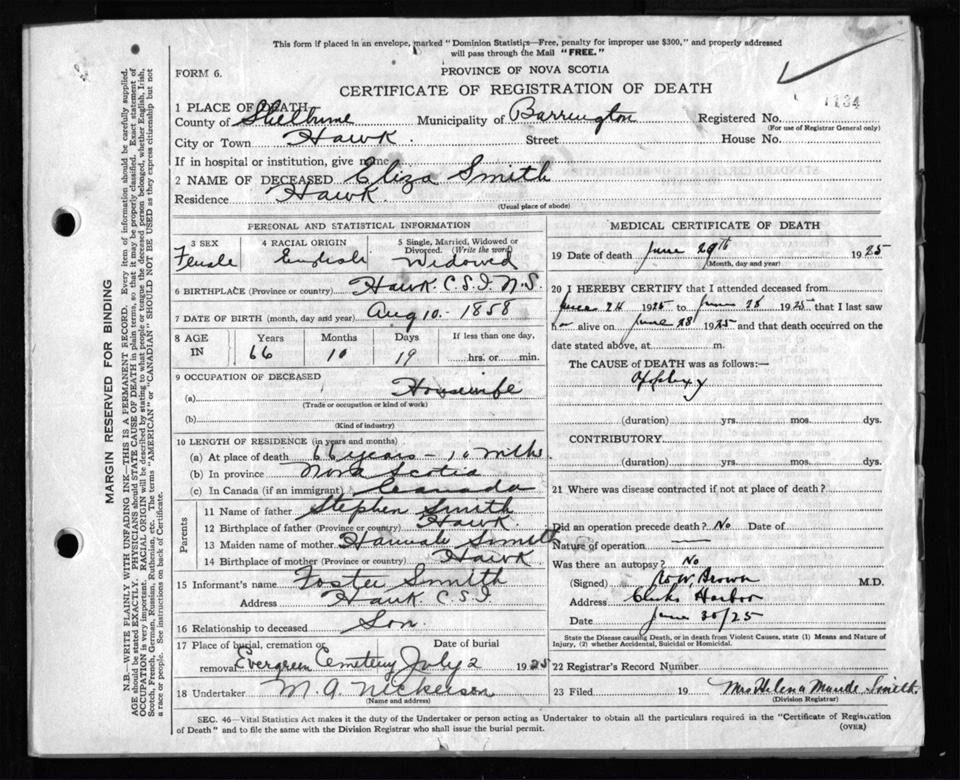 This form if placed in an envelope, marked "Dominion Statistics—Free, penalty for improper use $300," and properly addressed
will pass through the Mail "FREE."
FORM 6.
PROVINCE OF NOVA SCOTIA
CERTIFICATE OF REGISTRATION OF DEATH
1184
1 PLACE OF DEATH
County of Shelburne Municipality of Barrington Registered No.
(For use of Registrar General only)
City or Town Hawk. Street House No.
If in hospital or institution, give name
2 NAME OF DECEASED Eliza Smith
Residence Hawk.
(Usual place of abode)
PERSONAL AND STATISTICAL INFORMATION
3 SEX 4 RACIAL ORIGIN 5 Single, Married, Widowed or
Divorced. (Write the word)
Female English Widowed
6 BIRTHPLACE (Province or country) Hawk C. S. I. N.S.
7 DATE OF BIRTH (month, day and year) Aug 10 - 1858
8 AGE IN Years Months Days If less than one day,
66 10 19 hrs. or min.
9 OCCUPATION OF DECEASED
(a) Housewife
(Trade or occupation or kind of work)
(b)
(Kind of industry)
10 LENGTH OF RESIDENCE (in years and months)
(a) At place of death 66 years - 10 mths
(b) In province Nova Scotia
(c) In Canada (if an immigrant) Canada
Parents
11 Name of father Stephen Smith
12 Birthplace of father (Province or country) Hawk
13 Maiden name of mother Hannah Smith
14 Birthplace of mother (Province or country) Hawk
15 Informant's name Foster Smith
Address Hawk C.S.I
16 Relationship to deceased Son.
17 Place of burial, cremation or Date of burial
removal Evergreen Cemetery July 2 1925
18 Undertaker M. A. Nickerson
(Name and address)
MEDICAL CERTIFICATE OF DEATH
19 Date of death June 29th 1925
(Month, day and year)
20 I HEREBY CERTIFY that I attended deceased from
June 24 1925 to June 28 1925 that I last saw
her alive on June 28 1925 and that death occurred on the
date stated above, at m.
The CAUSE of DEATH was as follows:—
(duration) yrs. mos. dys.
CONTRIBUTORY.
(duration) yrs. mos. dys.
21 Where was disease contracted if not at place of death?
Did an operation precede death? No Date of
Nature of operation —
Was there an autopsy? No
(Signed) Brown M.D.
Address Clarks Harbor
Date June 30/25
State the Disease causing Death, or in death from Violent Causes, state (1) Means and Nature of
Injury, (2) whether Accidental, Suicidal or Homicidal.
22 Registrar's Record Number
23 Filed 19 Mrs Helena Maude Smith.
(Division Registrar)
SEC. 46—Vital Statistics Act makes it the duty of the Undertaker or person acting as Undertaker to obtain all the particulars required in the "Certificate of Registration
of Death" and to file the same with the Division Registrar who shall issue the burial permit.
(OVER)
MARGIN RESERVED FOR BINDING
N.B.—WRITE PLAINLY WITH UNFADING INK—THIS IS A PERMANENT RECORD. Every item of information should be carefully supplied.
AGE should be stated EXACTLY. PHYSICIANS should STATE CAUSE OF DEATH in plain terms, so that it may be properly classified. Exact statement of
OCCUPATION is very important. RACIAL ORIGIN will be described by stating to what people or tongue the deceased person belonged, whether English, Irish,
Scotch, French, German, Russian, Ruthenian, etc. The terms "AMERICAN" or "CANADIAN" SHOULD NOT BE USED as they express citizenship but not
a race or people. See instructions on back of Certificate.